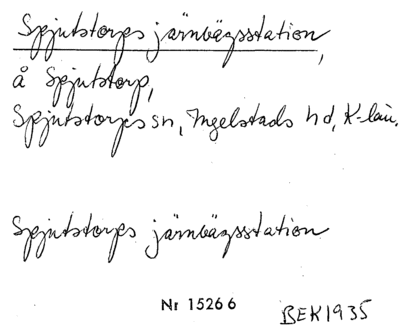 Spjutstorps järnvägsstation,
å Spjutstorp,
Spjutstorps sn, Ingelstads hd, K-län.
Spjutstorps järnvägsstation
Nr 15266
BEK1935